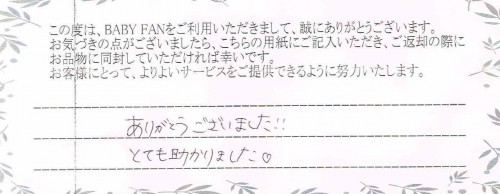 この度は、BABY FANをご利用いただきまして、誠にありがとうございます。
お気づきの点がございましたら、こちらの用紙にご記入いただき、ご返却の際に
お品物に同封していただければ幸いです。
お客様にとって、よりよいサービスをご提供できるように努力いたします。
ありがとうございました!!
とても助かりました♡